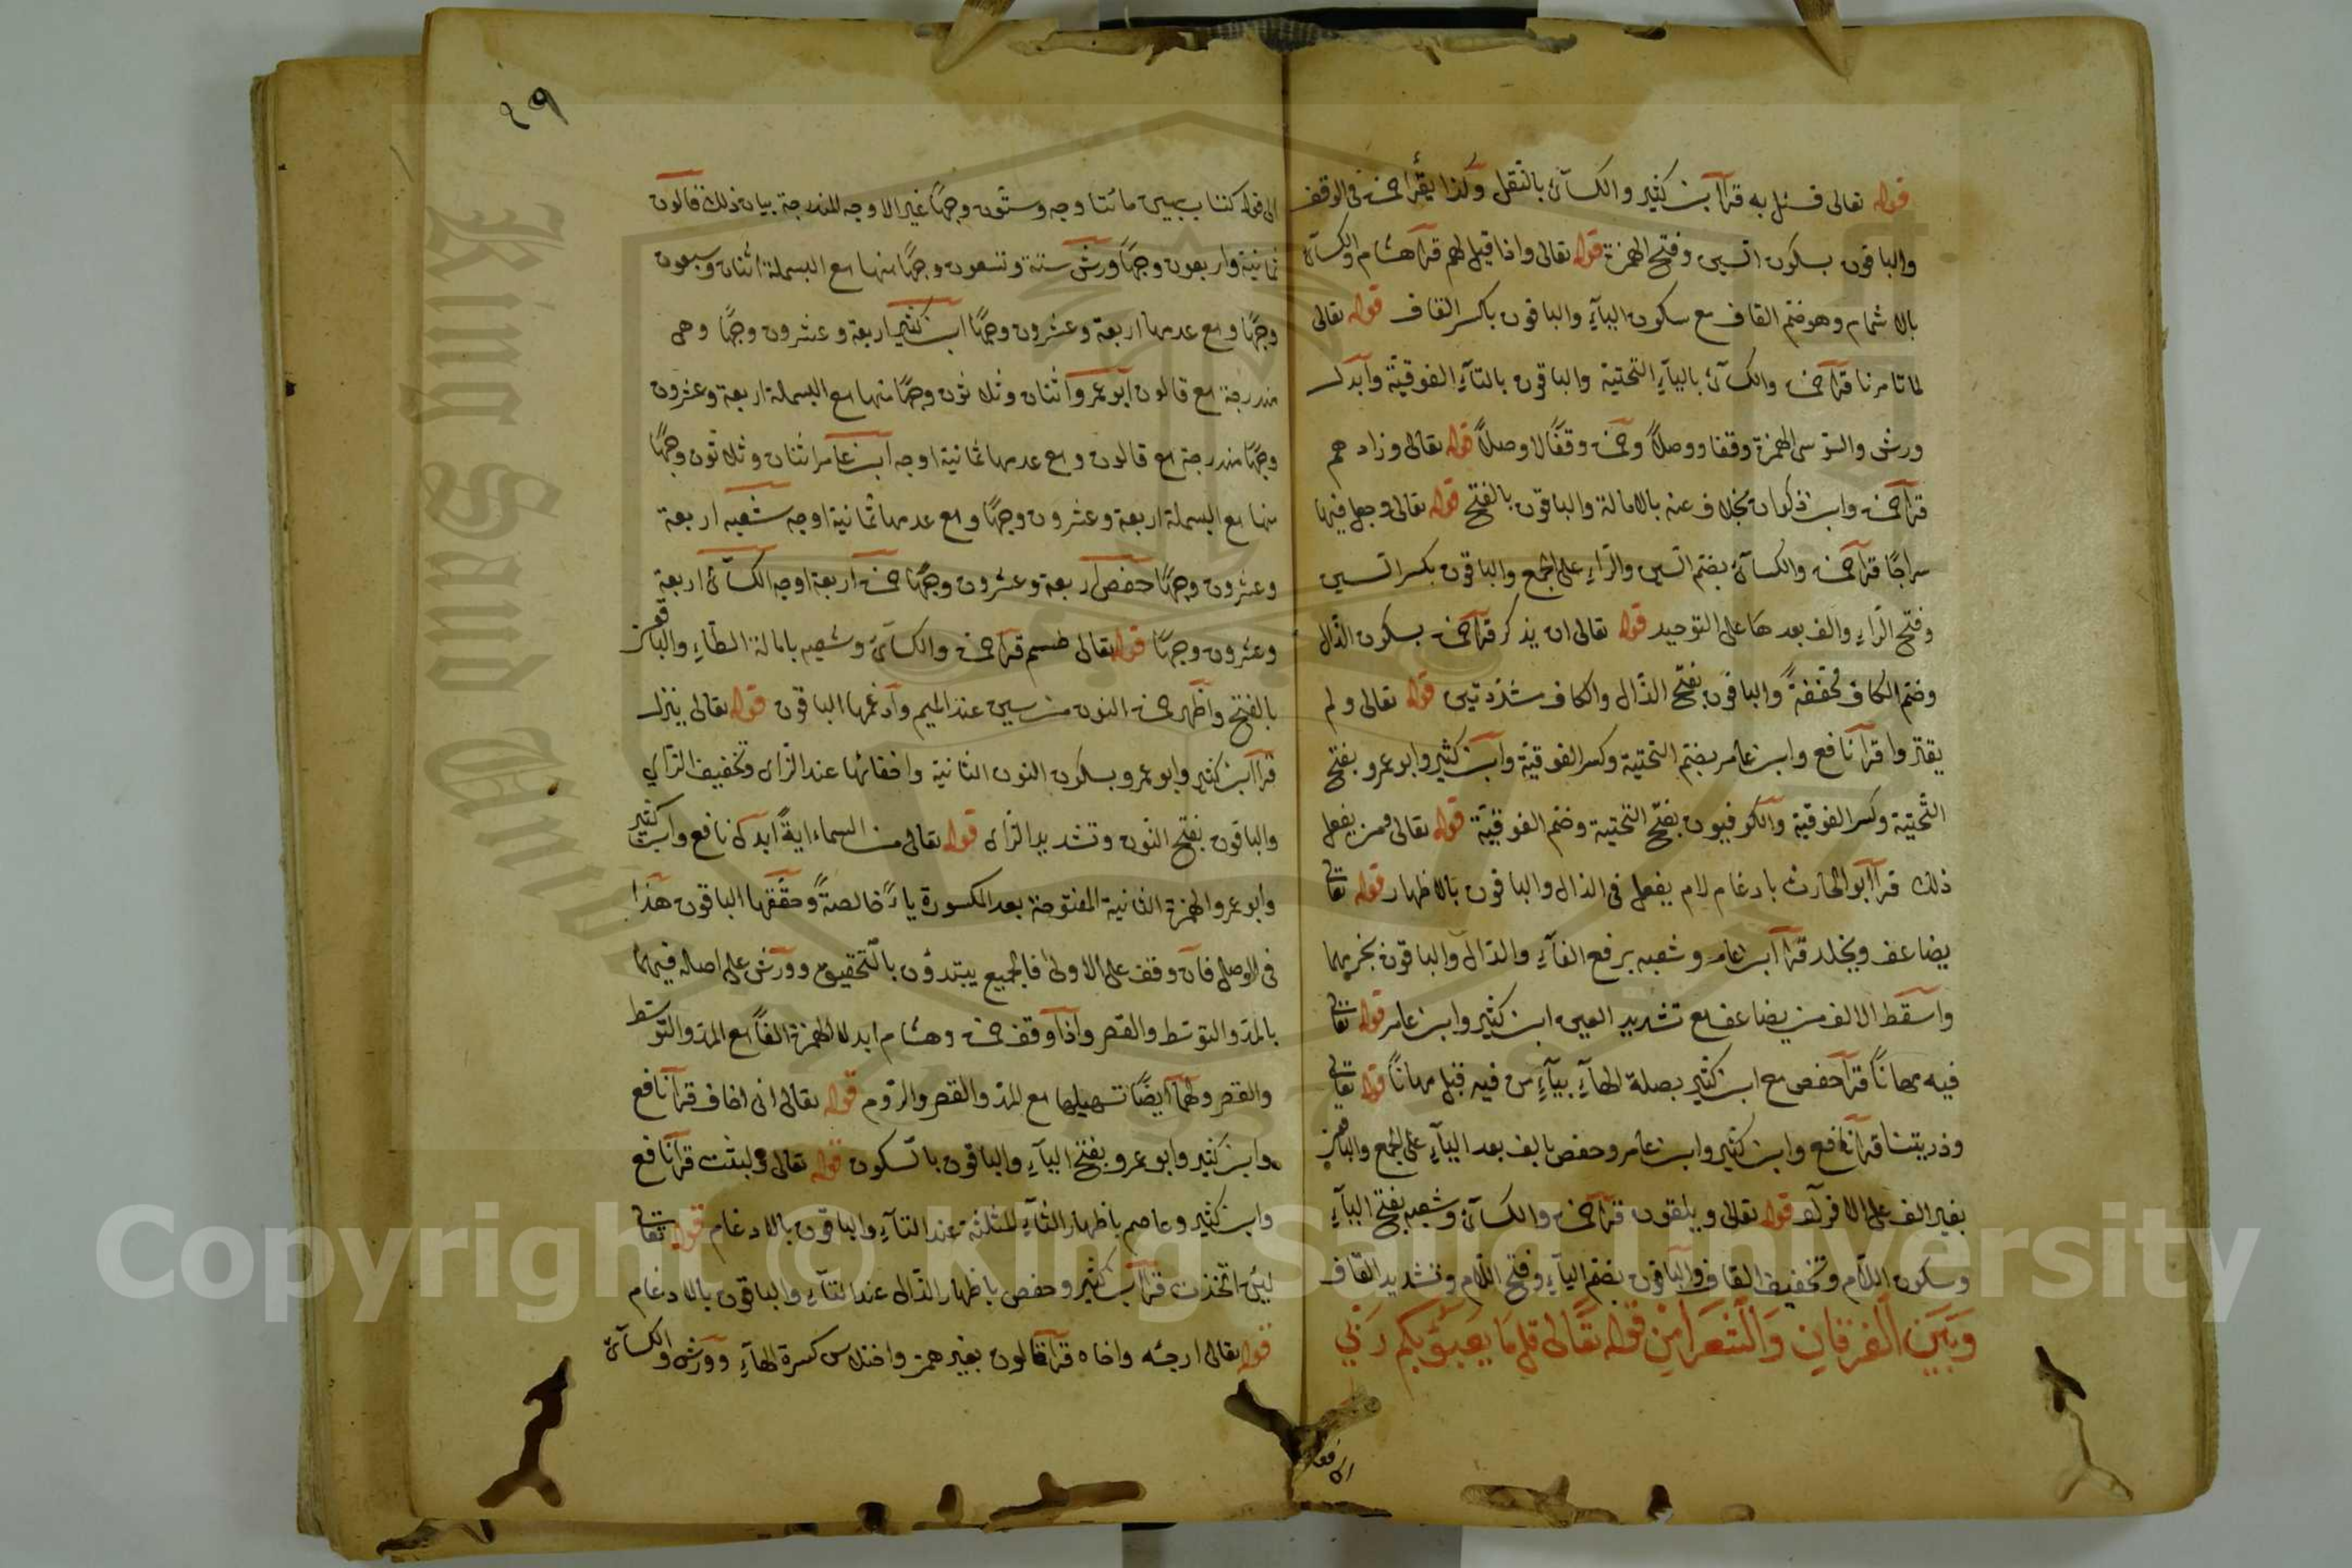 قوله تعالى فسئل به قرأ ابن كثير والكسآئى بالنقل وكذا يقرأ حمزة فى الوقف
والباقون بسكون السين وفتح الهمزة قوله تعالى واذا قيل لهم قرأ هشام والكسآئى
بالاشمام وهو ضم القاف مع سكون اليآء والباقون بكسر القاف قوله تعالى
لما تامرنا قرأ حمزة والكسآئى باليآء التحتية والباقون بالتآء الفوقيّة وأبدل
ورش والسوسى الهمزة وقفا ووصلاً وحمزة وقفًا لا وصلاً قوله تعالى وزادهم
قرأ حمزة وابن ذكوان بخلاف عنه بالامالة والباقون بالفتح قوله تعالى وجعل فيها
سراجًا قرأ حمزة والكسآئى بضم السين والرّاء على الجمع والباقون بكسر السين
وفتح الرّاء والف بعدها على التوحيد قوله تعالى ان يذكر قرأ حمزة بسكون الذّال
وضم الكاف مخففةً والباقون بفتح الذّال والكاف مشدّدتين قوله تعالى ولم
يقتروا قرأ نافع وابن عامر بضم التحتية وكسر الفوقيّة وابن كثير وابو عمرو بفتح
التّحتية وكسر الفوقية والكوفيون بفتح التحتية وضم الفوقيّة قوله تعالى ومن يفعل
ذلك قرأ أبو الحارث بادغام لام يفعل فى الذال والباقون بالاظهار قوله تعالى
يضاعف ويخلد قرأ ابن عامر وشعبه برفع الفآء والدّال والباقون بجزمهما
واسقط الالف من يضاعف مع تشديد العين ابن كثير وابن عامر قوله تعالى
فيه مهانًا قرأ حفص مع ابن كثير بصلة الهآء بيآء من فيه قبل مهانًا قوله تعالى
وذريتنا قرأ نافع وابن كثير وابن عامر وحفص بالف بعد اليآء على الجمع والباقون
بغير الف على الافراد قوله تعالى ويلقون قرأ حمزة والكسآئى وشعبه بفتح اليآء
وسكون اللّام وتخفيف القاف والباقون بضم اليآء وفتح اللّام وتشديد القاف
وَبَيَن الفرقان وَالشعَرا مِن قوله تعَالى قل مَا يعبؤبكم رَبّي
٤٩
الى قوله كتاب مبين مائتا وجه وستّون وجهًا غير الاوجه المندرجة بيان ذلك قالون
ثمانية واربعون وجهًا ورش ستة وتسعون وجهًا منها مع البسملة اثنان وسبعون
وجهًا ومع عدمها اربعة وعشرون وجهًا ابن كثير اربعة وعشرون وجهًا وهى
مندرجة مع قالون أبو عمرو اثنان وثلاثون وجهًا منها مع البسملة اربعة وعشرون
وجهًا مندرجة مع قالون ومع عدمها ثمانية اوجه ابن عامر اثنان وثلاثون وجهًا
منها مع البسملة اربعة وعشرون وجهًا ومع عدمها ثمانية اوجه شعبه اربعة
وعشرون وجهًا حفص اربعة وعشرون وجهًا حمزة اربعة اوجه الكسآئى اربعة
وعشرون وجهًا قوله تعالى طسم قرأ حمزة والكسآئى وشعبه بامالة الطّاء والباقون
بالفتح واظهر حمزة النون من سين عند الميم وأدغمها الباقون قوله تعالى ينزل
قرأ ابن كثير وابو عمرو بسكون النون الثانية واخفائها عند الزّاى وتخفيف الزّاي
والباقون بفتح النّون وتشديد الزّاى قوله تعالى من السماء ايةً ابدل نافع وابن كثير
وابو عمرو الهمزة الثانية المفتوحة بعد المكسورة ياءً خالصةً وحقّقها الباقون هذا
فى الوصل فان وقف على الاولى فالجميع يبتدؤن بالتّحقيق وورش على اصله فيهما
بالمدّ والتوسّط والقصر واذا وقف حمزة وهشام ابدلا الهمزة الفًا مع المدّ والتّوسّط
والقصر ولهما ايضًا تسهيلها مع المدّ والقصر والرّوم قوله تعالى انى اخاف قرأ نافع
وابن كثير وابو عمرو بفتح اليآء والباقون بالسّكون قوله تعالى ولبثت قرأ نافع
وابن كثير وعاصم باظهار الثآء المثلثة عند التآء والباقون بالادغام قوله تعالى
لئن اتّخذت قرأ ابن كثير وحفص باظهار الذّال عند التآء والباقون بالادغام
قوله تعالى ارجئه واخاه قرأ قالون بغير همز واختلاس كسرة الهآء وورش والكسآئى
King Saud University
Copyright © King Saud University